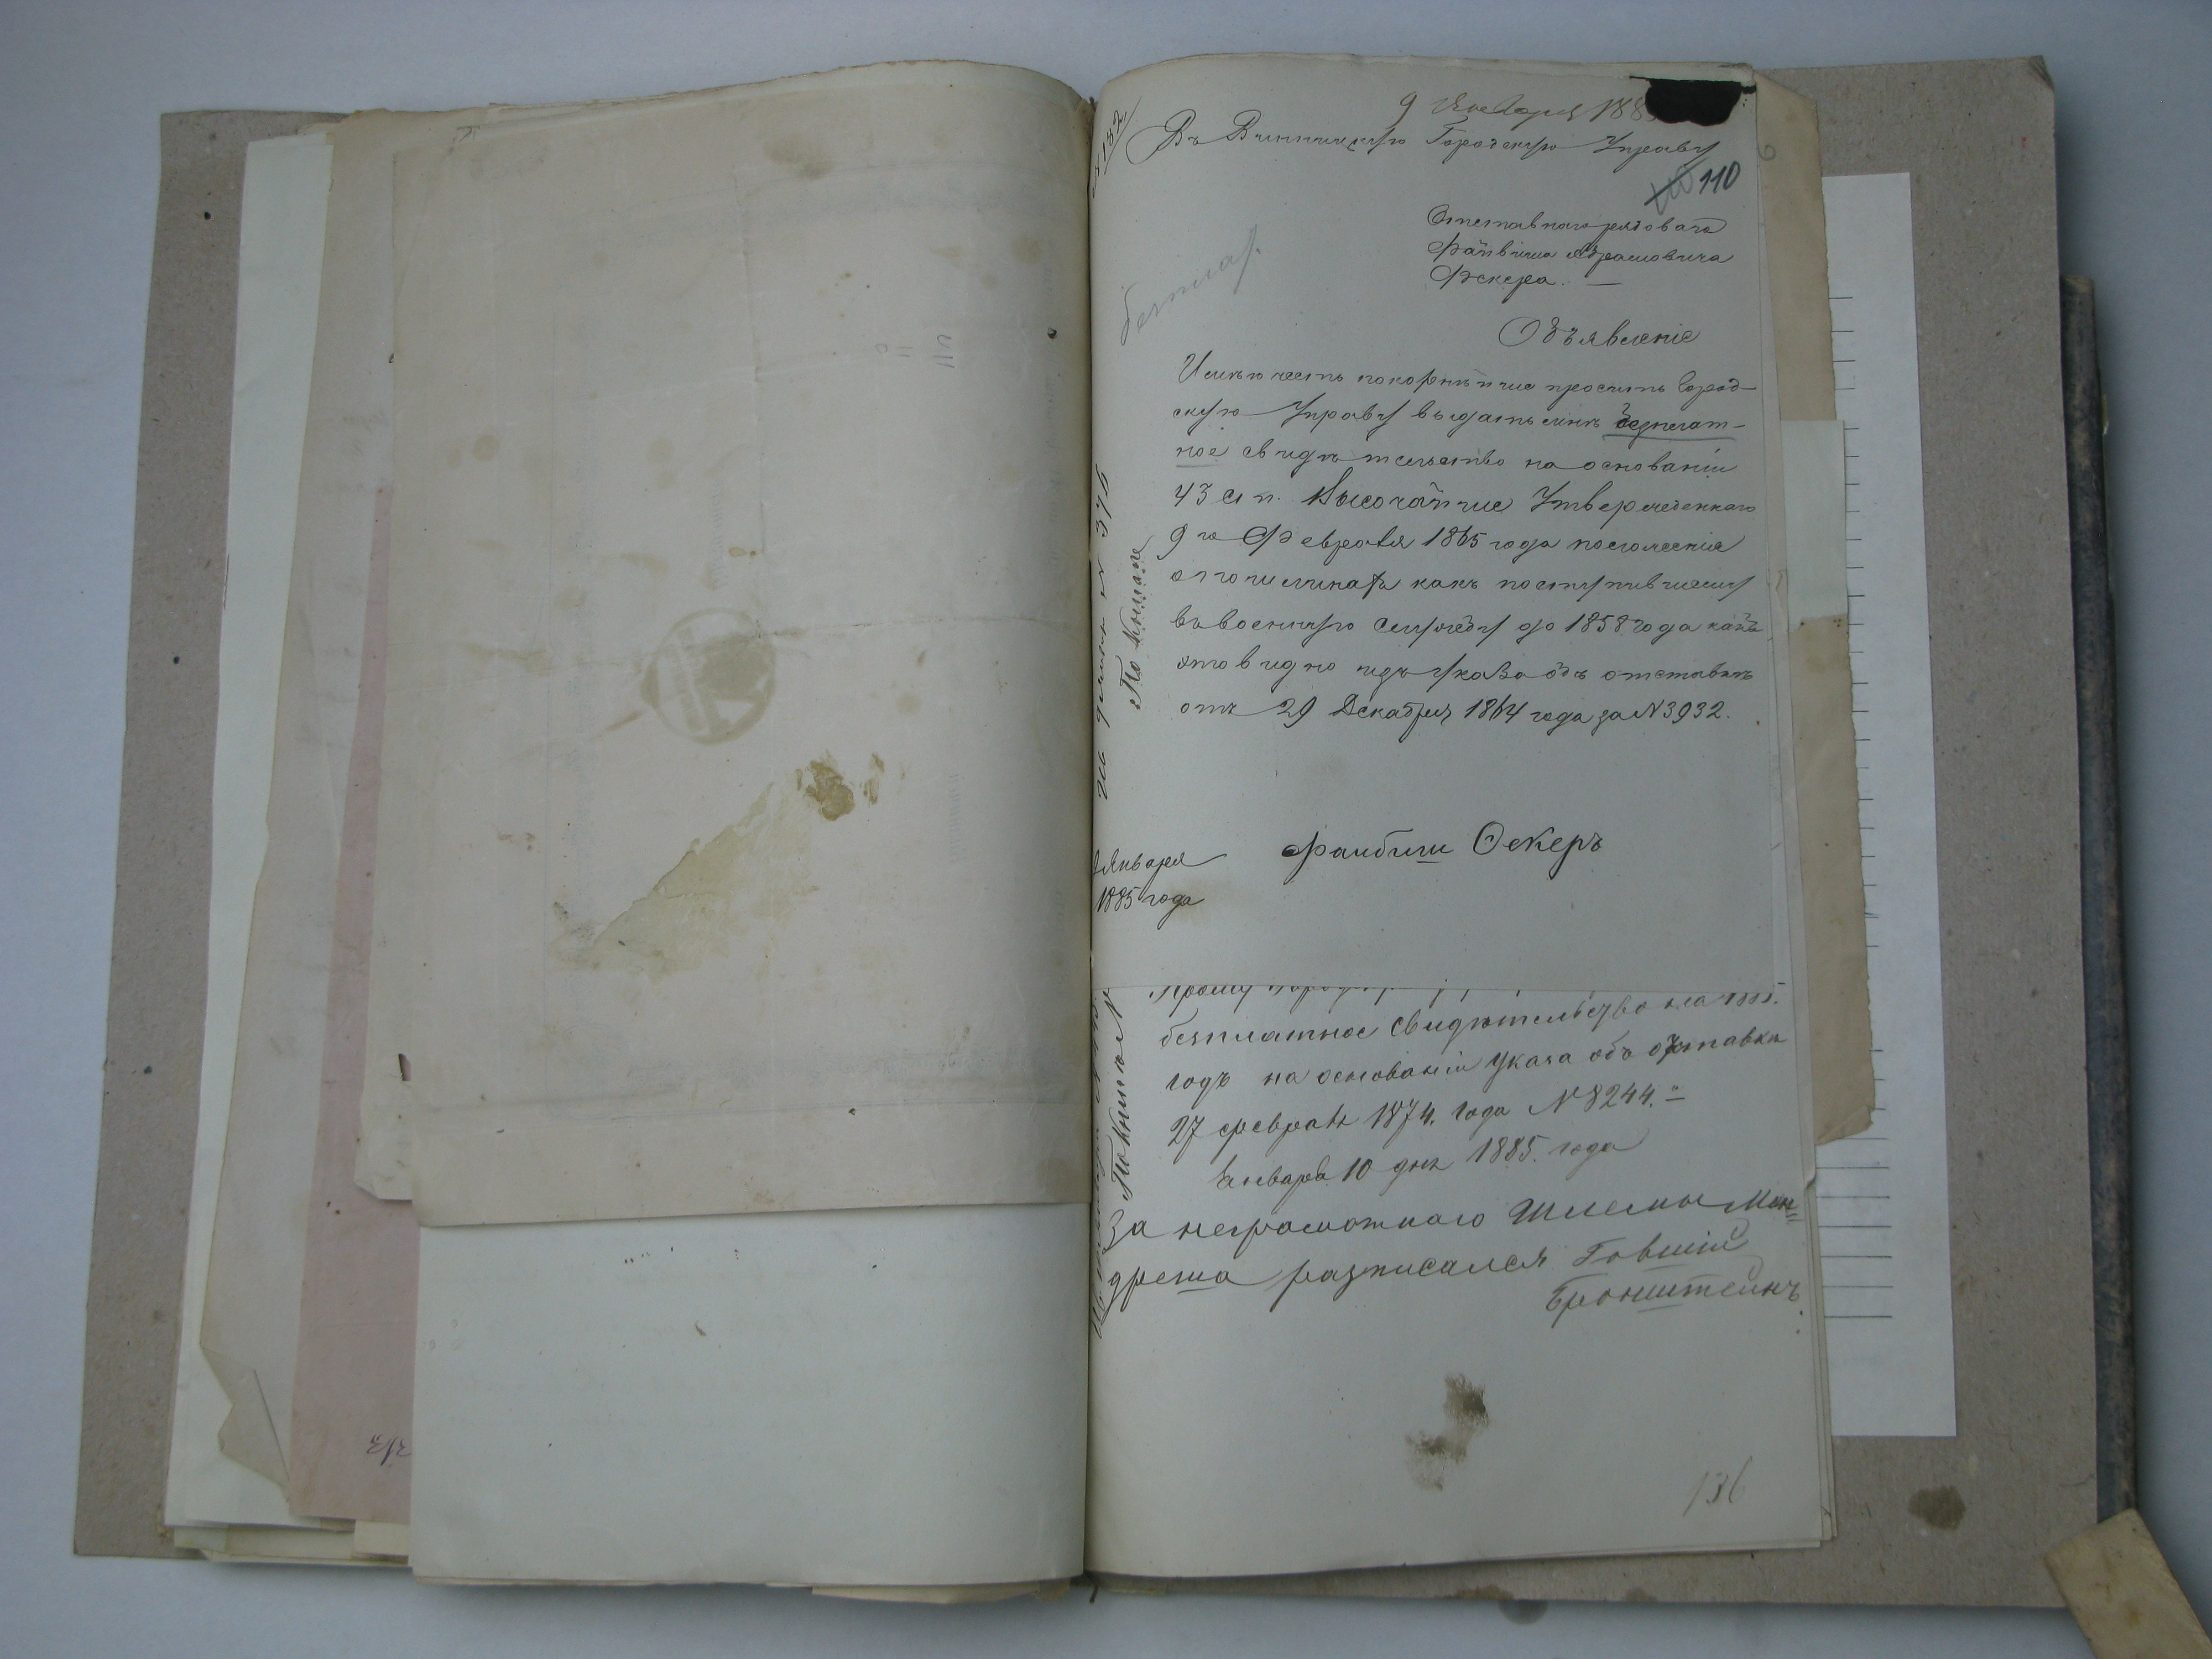 9 Января 188
Въ Винницкую Городскую Управу
110
Отставнаго рядоваго
Файвиша Абрамовича
Оскера. —
Объявленіе
Имѣю честь покорнѣйше просить Город-
скую Управу выдать мнѣ безплат-
ное свидѣтельство на основаніи
43 ст п. Высочайше Утвержденнаго
9го Февраля 1865 года положенія
о пошлинахъ какъ поступившему
въ военную службу до 1858 года какъ
это видно изъ указа объ отставкѣ
отъ 29 Декабря 1864 года за N 3932.
Файбиш Оскеръ
9 Января
1885 года
По книгѣ
безплат.
Прошу
безплатное свидѣтельство на 1885.
годъ на основаніи указа объ отставки
27 феврал 1874. года № 8244.
Января 10 дня 1885. года
За неграмотнаго Шлемы Мен=
дреша разписался Говшій
Бронштейнъ.
По книгѣ №
136